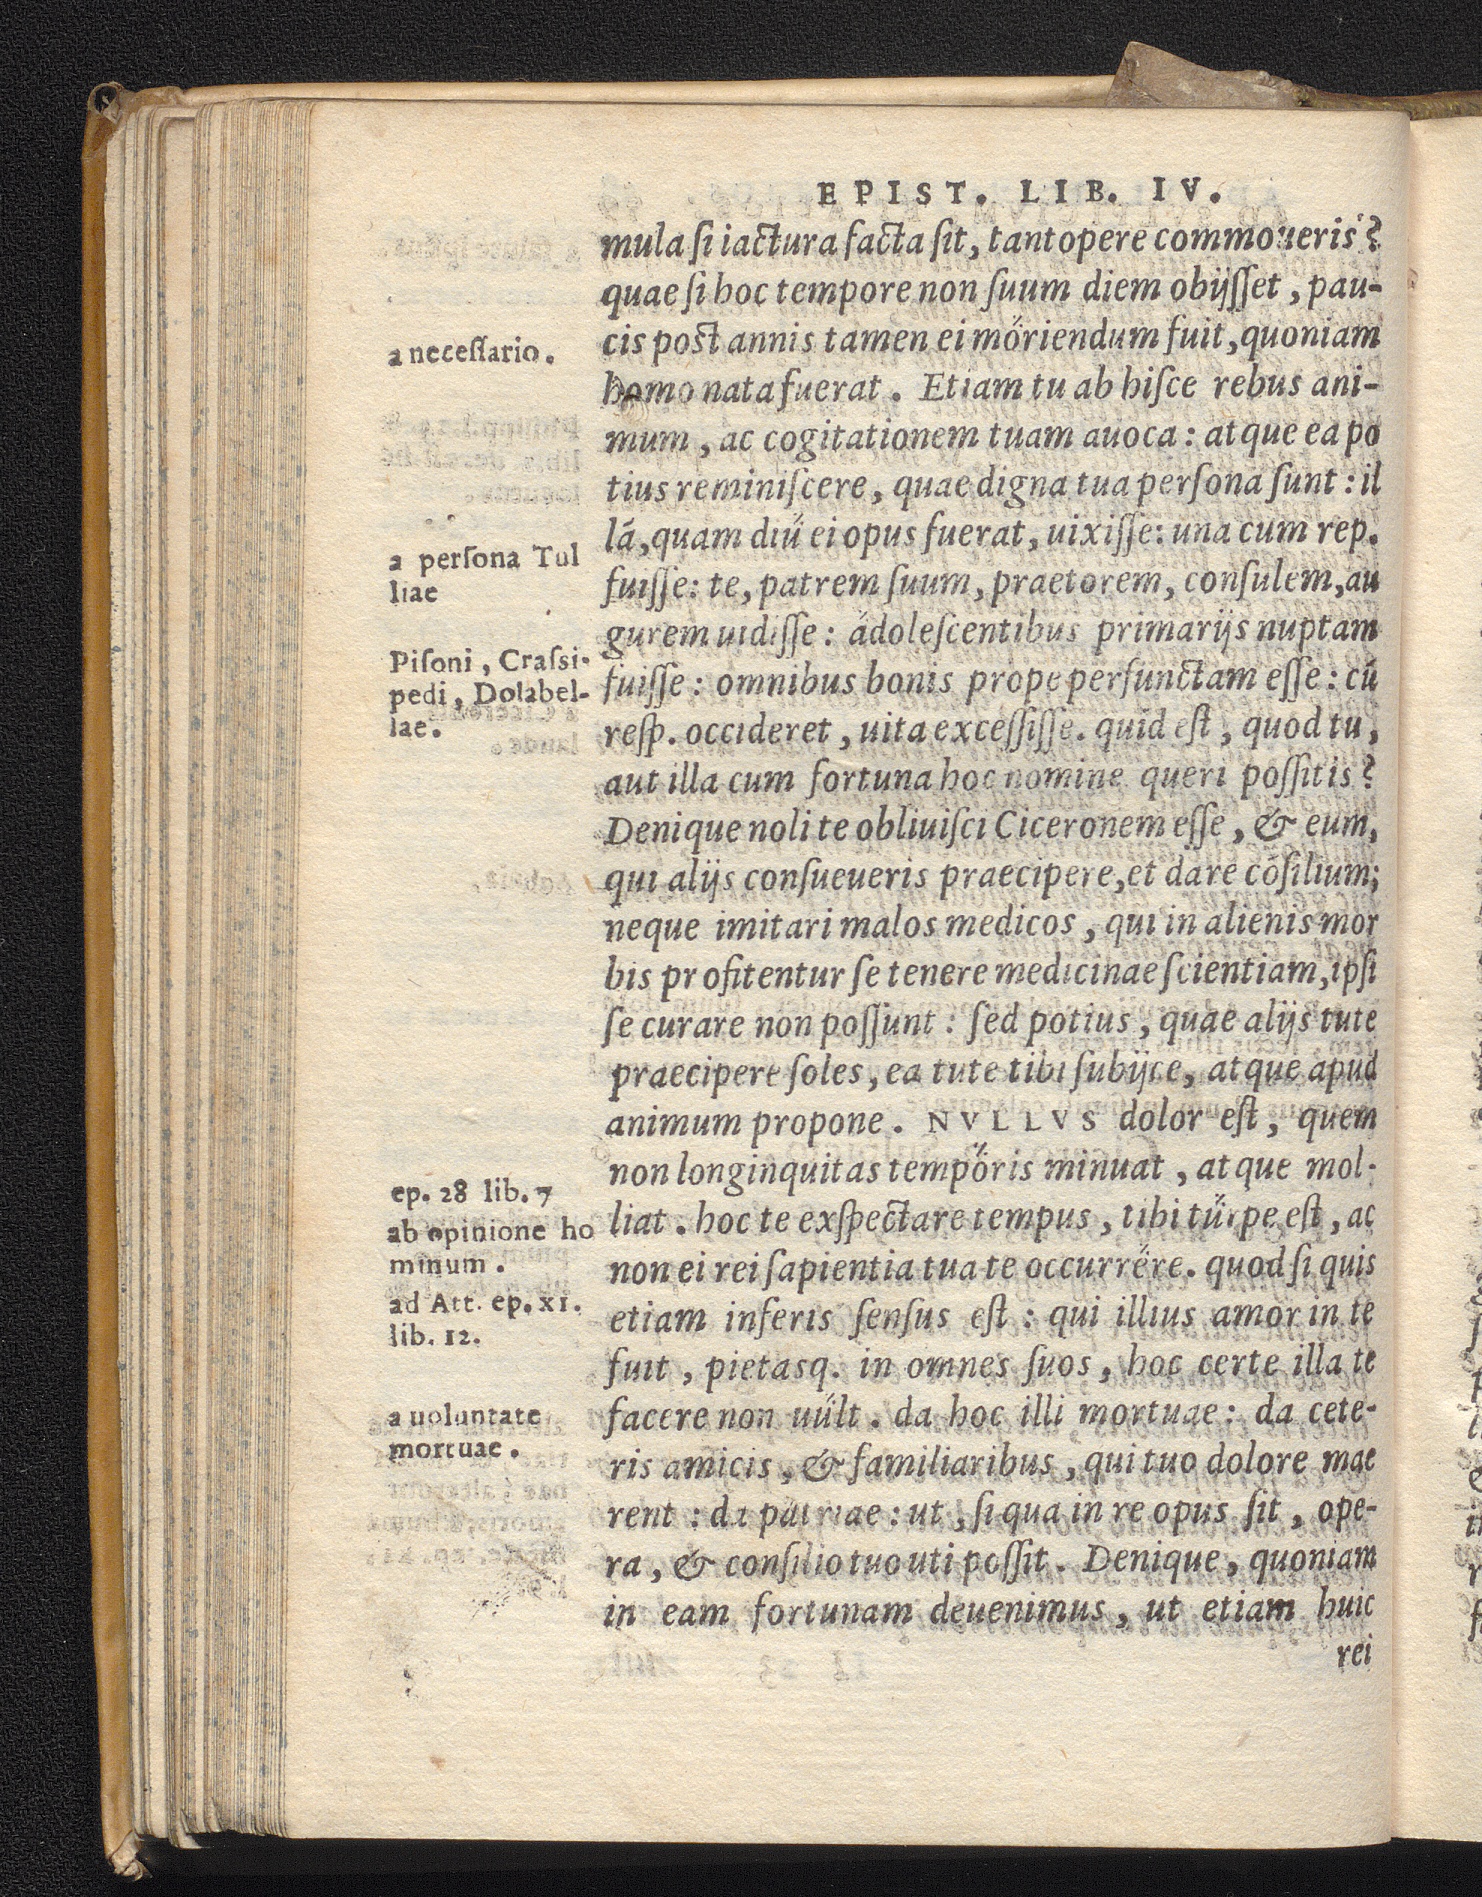 EPIST. LIB. IV.
mula si iactura facta sit, tantopere commoueris?
quae si hoc tempore non suum diem obijsset, pau-
cis post annis tamen ei moriendum fuit, quoniam
a necessario.
homo nata fuerat. Etiam tu ab hisce rebus ani-
mum, ac cogitationem tuam auoca: atque ea po
tius reminiscere, quae digna tua persona sunt: il
lā, quam diu ei opus fuerat, uixisse: una cum rep.
a persona Tul
liae
fuisse: te, patrem suum, praetorem, consulem, au
gurem uidisse: adolescentibus primarijs nuptam
Pisoni, Crassi-
pedi, Dolabel-
lae.
fuisse: omnibus bonis prope perfunctam esse: cū
resp. occideret, uita excessisse. quid est, quod tu,
aut illa cum fortuna hoc nomine queri possitis?
Denique noli te obliuisci Ciceronem esse, & eum,
qui alijs consueueris praecipere, et dare cōsilium;
neque imitari malos medicos, qui in alienis mor
bis profitentur se tenere medicinae scientiam, ipsi
se curare non possunt: sed potius, quae alijs tute
praecipere soles, ea tute tibi subijce, atque apud
animum propone. NVLLVS dolor est, quem
non longinquitas temporis minuat, atque mol-
ep. 28 lib. 7
ab opinione ho
minum.
liat. hoc te exspectare tempus, tibi turpe est, ac
non ei rei sapientia tua te occurrere. quod si quis
ad Att. ep. XI.
lib. 12.
etiam inferis sensus est: qui illius amor in te
fuit, pietasq. in omnes suos, hoc certe illa te
a uoluntate
mortuae.
facere non uult. da hoc illi mortuae: da cete-
ris amicis, & familiaribus, qui tuo dolore mae
rent: da patriae: ut, si qua in re opus sit, ope-
ra, & consilio tuo uti possit. Denique, quoniam
in eam fortunam deuenimus, ut etiam huic
rei